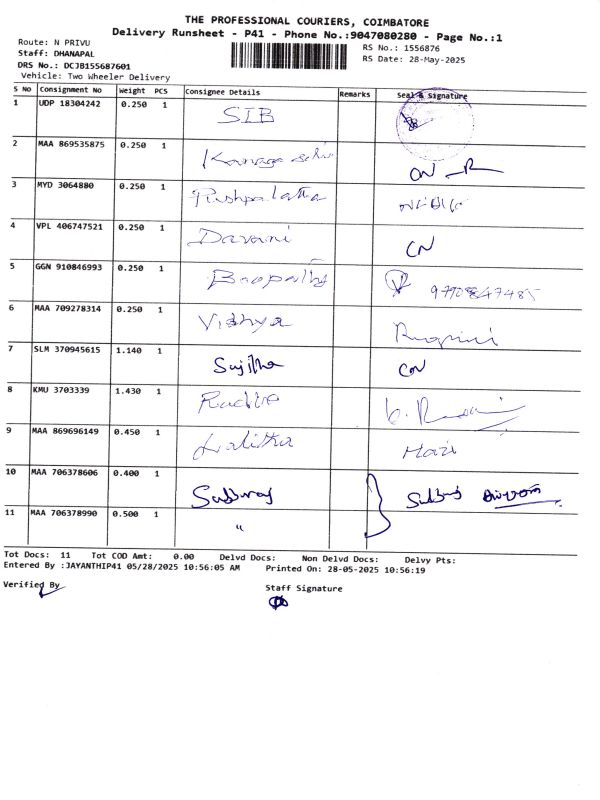 THE PROFESSIONAL COURIERS, COIMBATORE
Delivery Runsheet - P41 - Phone No.:9047080280 - Page No.:1
Route: N PRIVU
Staff: DHANAPAL
DRS No.: DCJB155687601
Vehicle: Two Wheeler Delivery
RS No.: 1556876
RS Date: 28-May-2025
S No Consignment No Weight PCS Consignee Details Remarks Seal & Signature
1 UDP 18304242 0.250 1 SIB
2 MAA 869535875 0.250 1 ON
3 MYD 3064880 0.250 1 Pushpalatha
4 VPL 406747521 0.250 1 Davani CN
5 GGN 910846993 0.250 1 Boopathy
6 MAA 709278314 0.250 1 Vidhya Ragini
7 SLM 370945615 1.140 1 Sujitha CN
8 KMU 3703339 1.430 1
9 MAA 869696149 0.450 1 Lalitha Hari
10 MAA 706378606 0.400 1 Subburaj Subburaj
11 MAA 706378990 0.500 1 "
Tot Docs: 11 Tot COD Amt: 0.00 Delvd Docs: Non Delvd Docs: Delvy Pts:
Entered By :JAYANTHIP41 05/28/2025 10:56:05 AM Printed On: 28-05-2025 10:56:19
Verified By Staff Signature